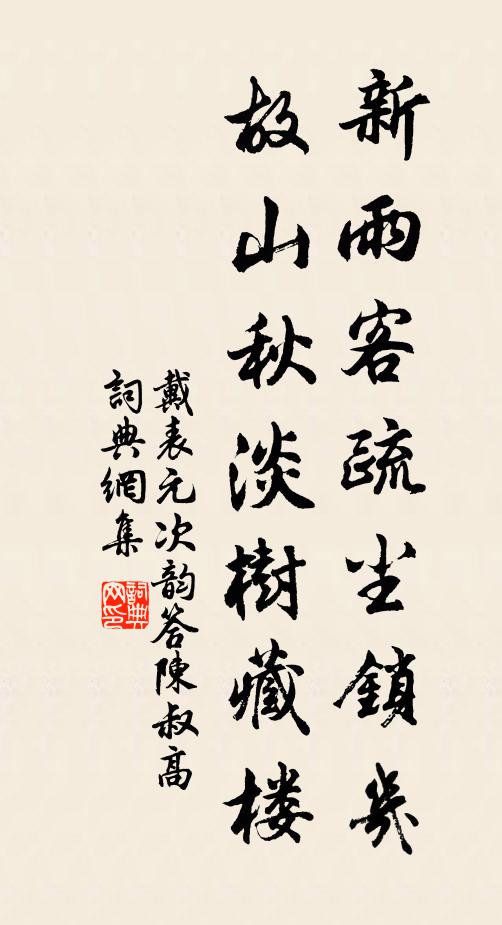 新雨客疏尘鎖幾
故山秋淡樹藏楼
戴表元次韵答陳叔高
詞典網集
詞典网印